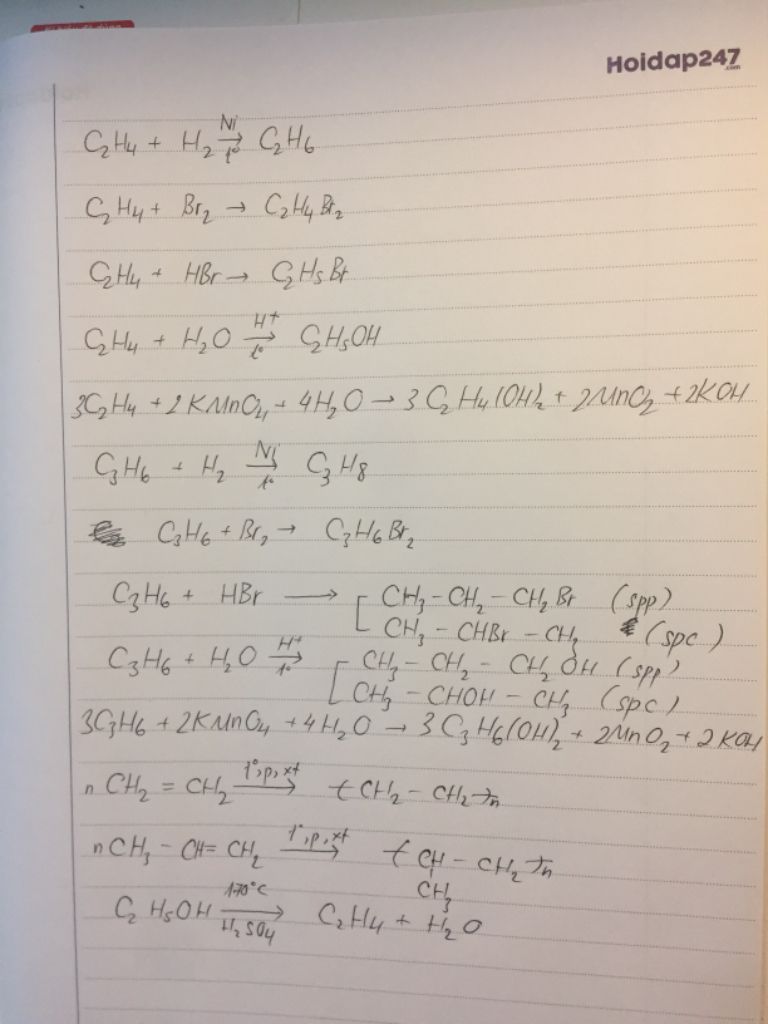 Hoidap247
.com
C2H4 + H2 Ni→t° C2H6
C2H4 + Br2 → C2H4Br2
C2H4 + HBr → C2H5Br
C2H4 + H2O H+→t° C2H5OH
3C2H4 + 2KMnO4 + 4H2O → 3C2H4(OH)2 + 2MnO2 + 2KOH
C3H6 + H2 Ni→t° C3H8
C3H6 + Br2 → C3H6Br2
C3H6 + HBr → [ CH3 - CH2 - CH2Br (spp)
CH3 - CHBr - CH3 (spc)
C3H6 + H2O H+→t° [ CH3 - CH2 - CH2OH (spp)
CH3 - CHOH - CH3 (spc)
3C3H6 + 2KMnO4 + 4H2O → 3C3H6(OH)2 + 2MnO2 + 2KOH
n CH2 = CH2 t°,p,xt→ (CH2 - CH2)n
n CH3 - CH = CH2 t°,p,xt→ (CH - CH2)n
CH3
C2H5OH 170°C→H2SO4 C2H4 + H2O